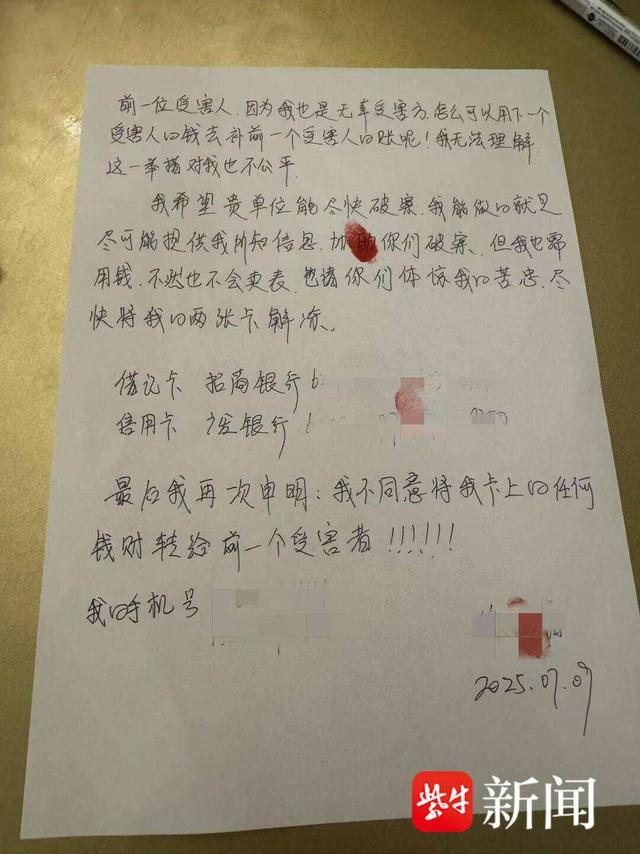 前一位受害人.因为我也是无辜受害方,怎么可以用下一个
受害人的钱去补前一个受害人的账呢!我无法理解.
这一举措对我也不公平.
我希望贵单位能尽快破案.我能做的就是
尽可能提供我所知信息.协助你们破案.但我也需
用钱.不然也不会卖表.也请你们体谅我的苦忠.尽
快将我的两张卡解冻.
借记卡 招商银行6
信用卡 广发银行6
最后我再次申明:我不同意将我卡上的任何
钱财转给前一个受害者!!!!!!
我的手机号
2025.07.09
紫牛新闻